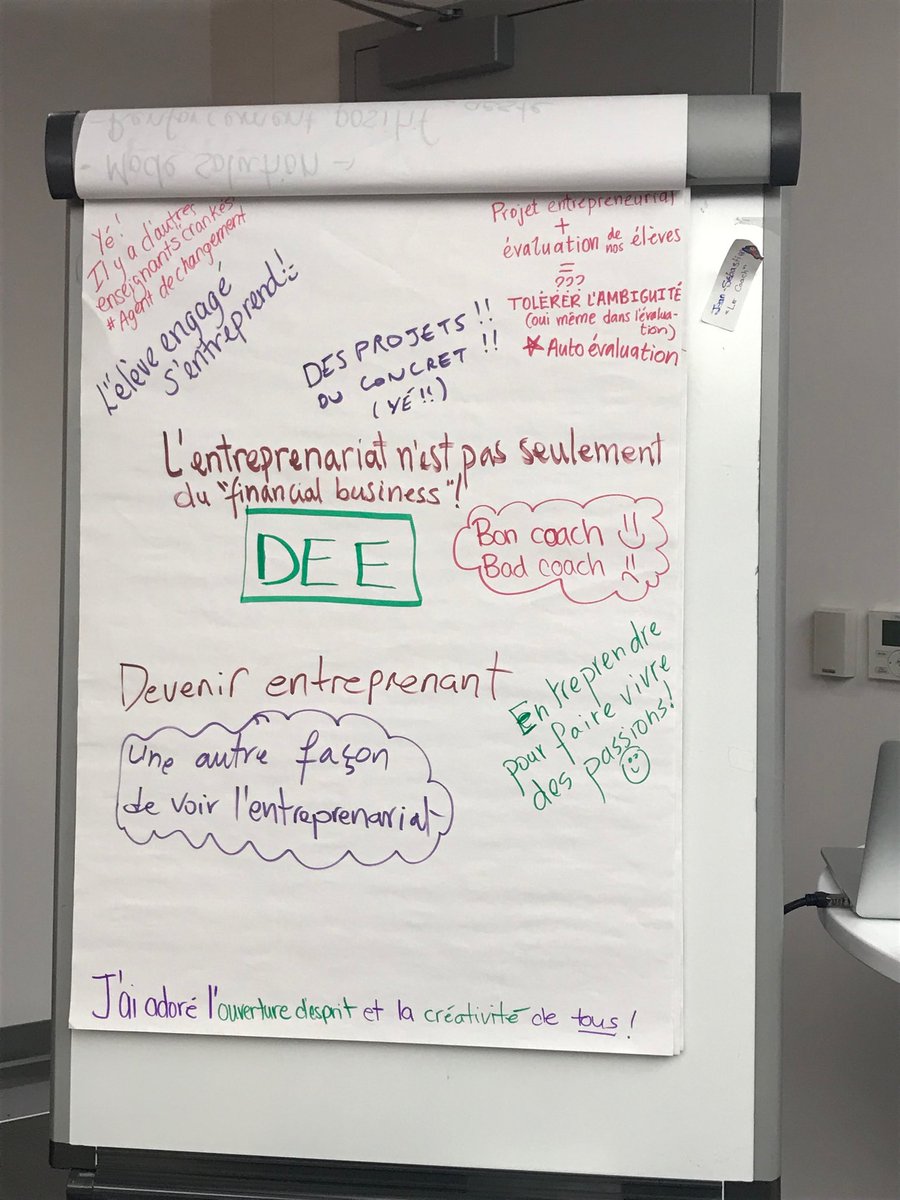 - Renforcement positif
- Mode solution →
Yé!
Il y a d'autres
enseignants crankés
# Agent de changement
L'élève engagé
s'entreprend!
Projet entrepreneurial
+
évaluation de nos élèves
=
???
TOLÉRER L'AMBIGUITÉ
(oui même dans l'évalua-
tion)
★ Auto évaluation
Jean-Sébastien
"Le Coach"
DES PROJETS !!
DU CONCRET !!
(YÉ!!)
L'entreprenariat n'est pas seulement
du "financial business"!
DEE
Bon coach
Bad coach
Devenir entreprenant
Entreprendre
pour faire vivre
des passions!
Une autre façon
de voir l'entreprenariat
J'ai adoré l'ouverture d'esprit et la créativité de tous!